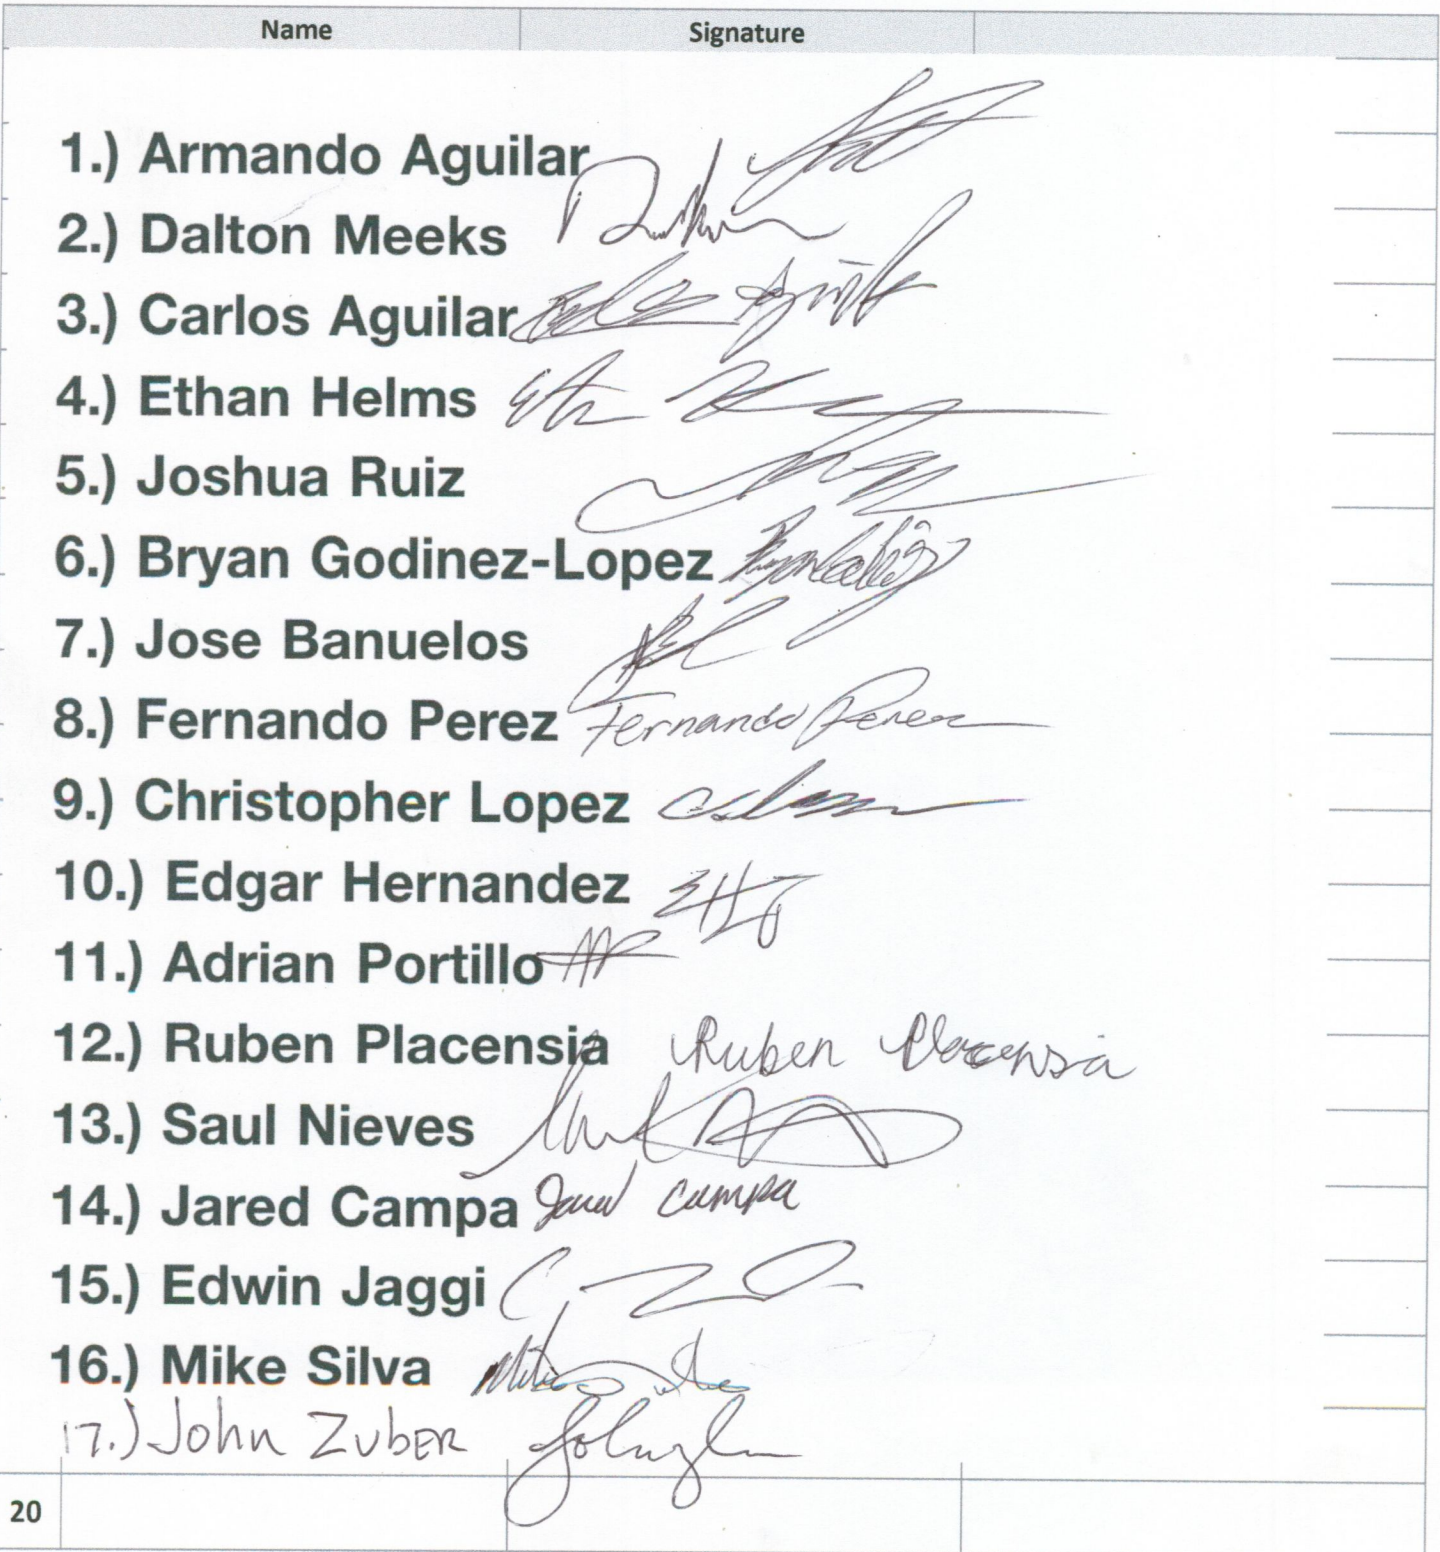 Name Signature
1.) Armando Aguilar
2.) Dalton Meeks
3.) Carlos Aguilar
4.) Ethan Helms
5.) Joshua Ruiz
6.) Bryan Godinez-Lopez
7.) Jose Banuelos
8.) Fernando Perez Fernando Perez
9.) Christopher Lopez
10.) Edgar Hernandez
11.) Adrian Portillo
12.) Ruben Placensia Ruben Placensia
13.) Saul Nieves
14.) Jared Campa Jared Campa
15.) Edwin Jaggi
16.) Mike Silva
17.) John ZUBER
20